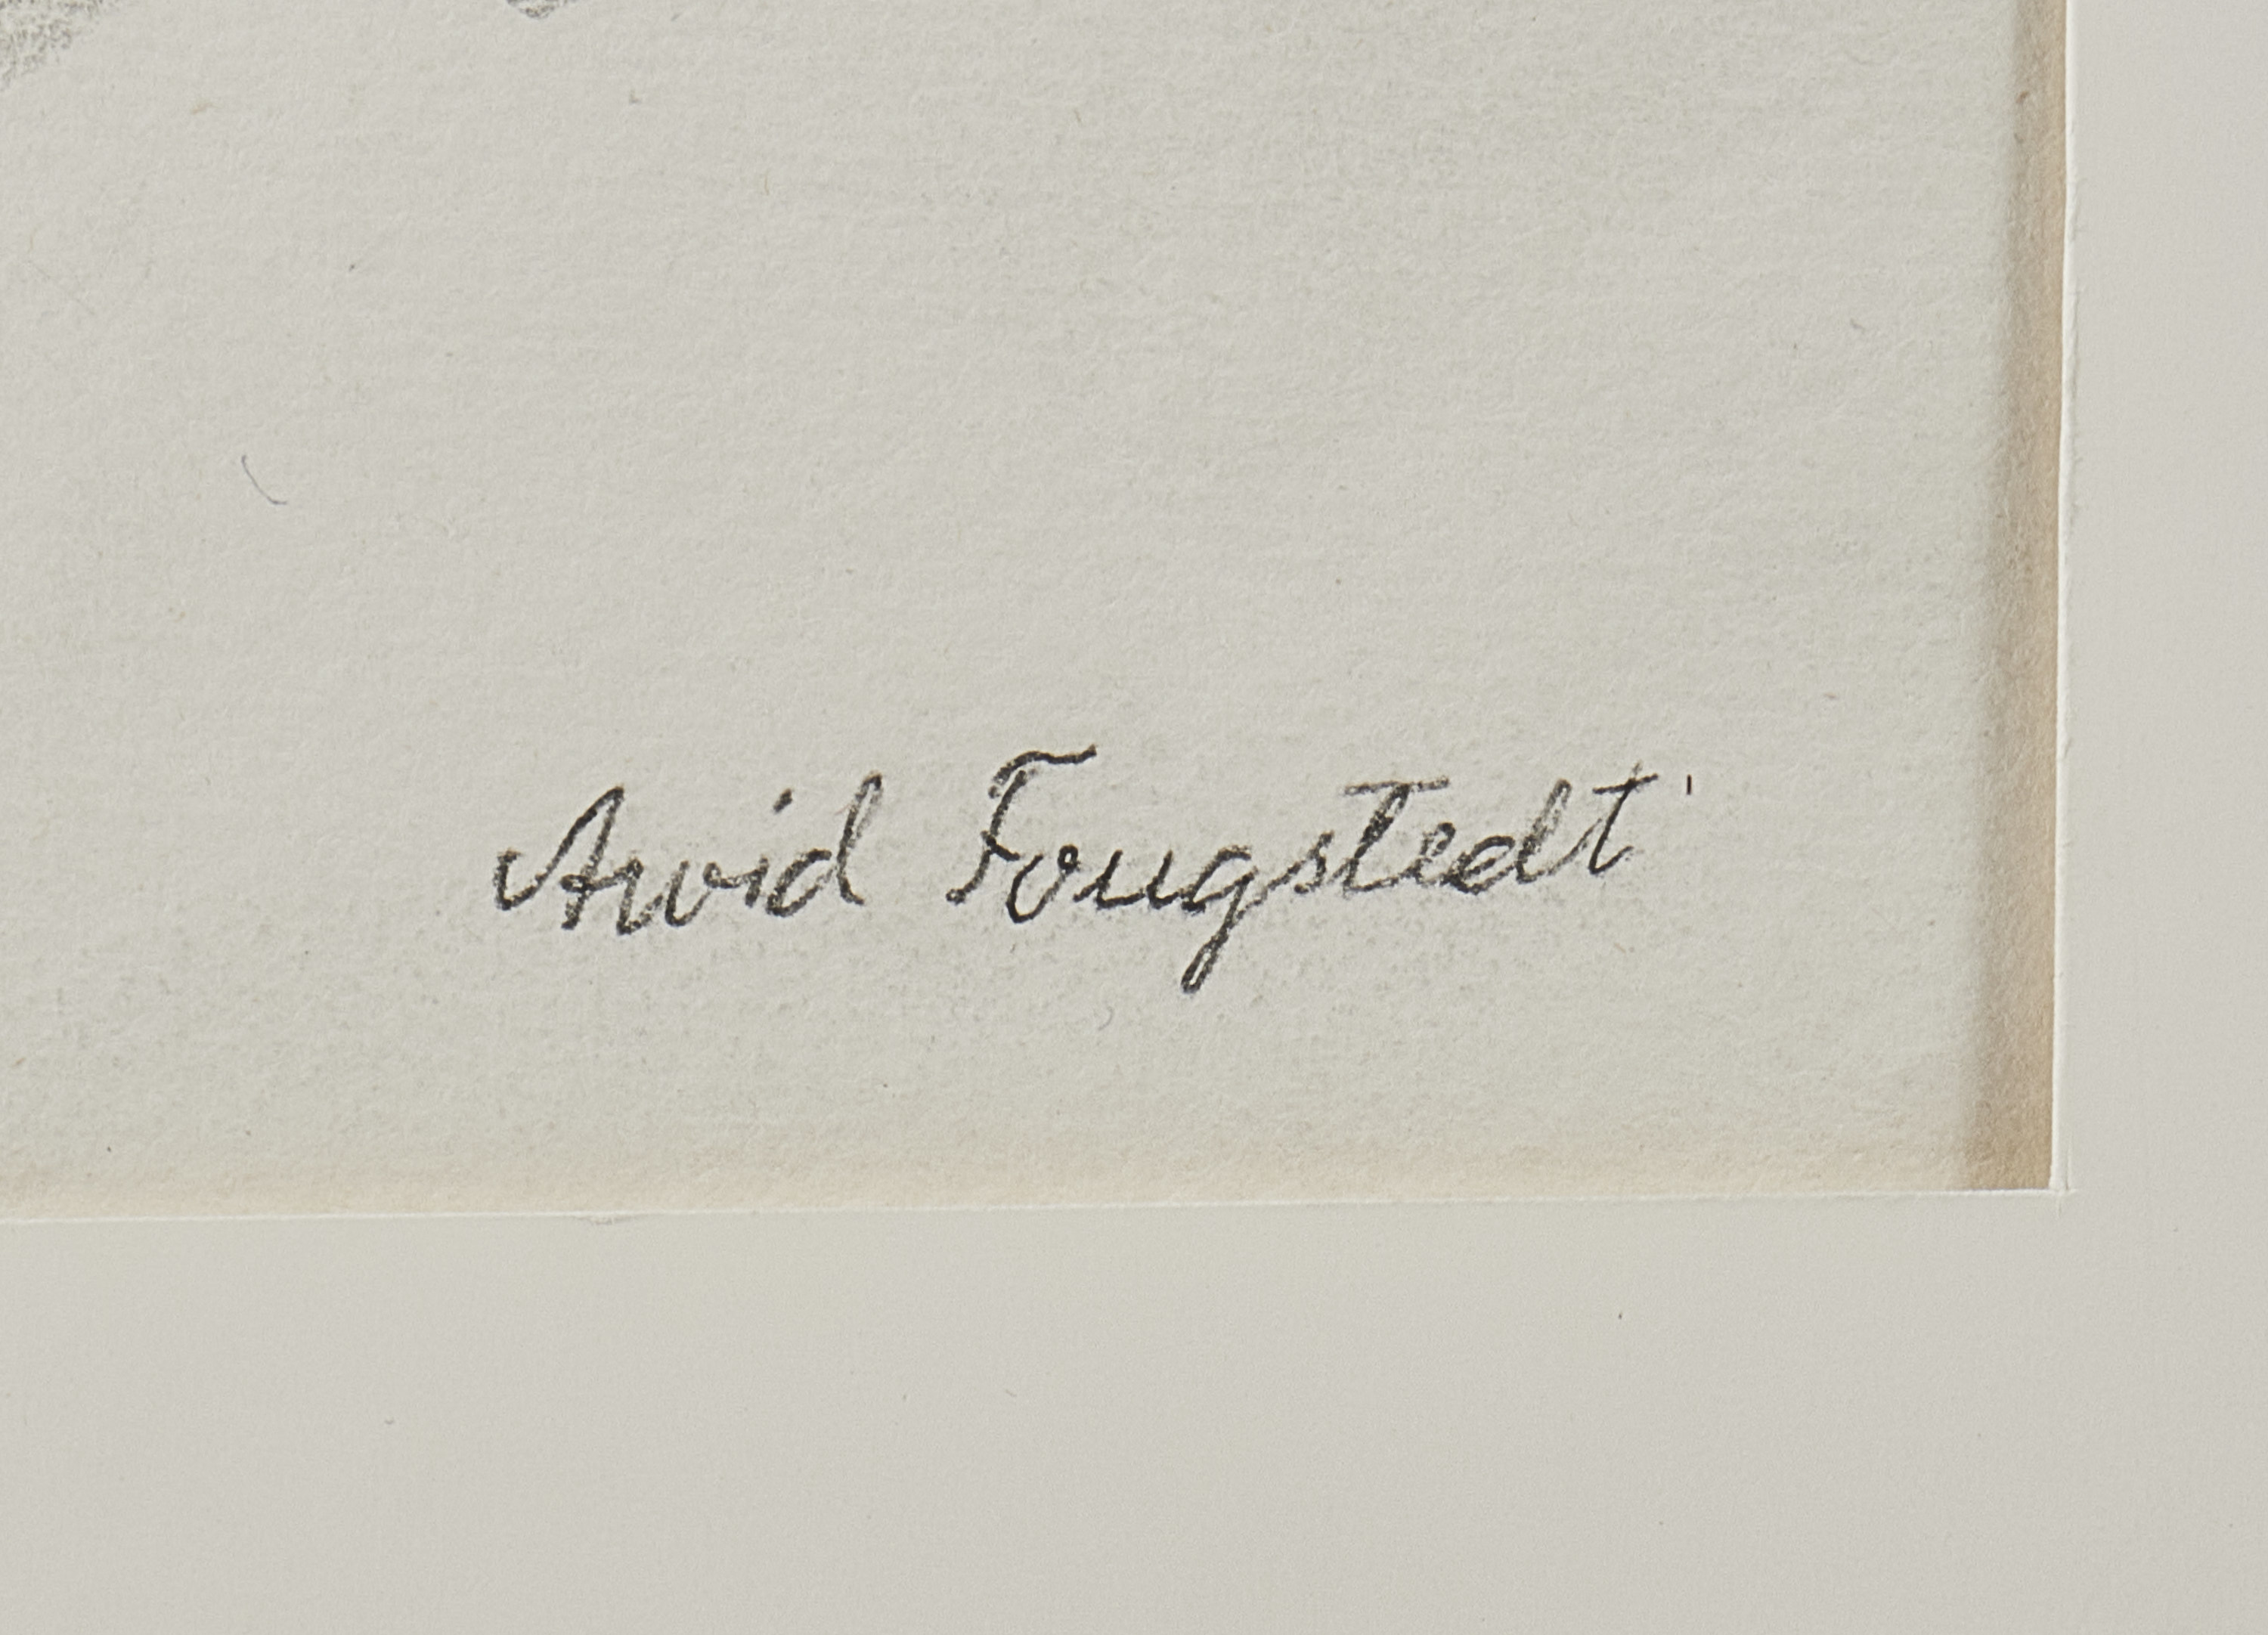 Arvid Fougstedt